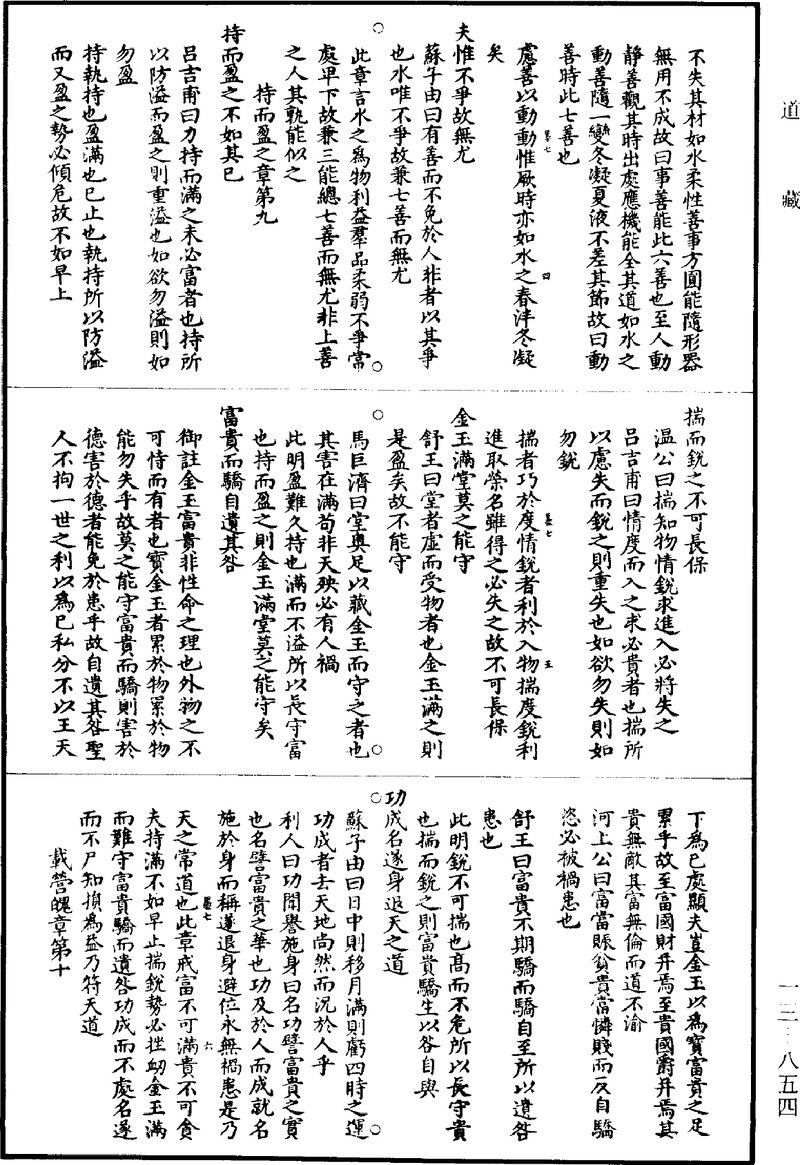 道藏
不失其材如水柔性善事方圓能隨形器
無用不成故曰事善能此六善也至人動
靜善觀其時出處應機能全其道如水之
動善隨一變冬凝夏液不差其節故曰動
善時此七善也
慮善以動動惟厥時亦如水之春泮冬凝
矣
夫惟不爭故無尤
蘇子由曰有善而不免於人非者以其爭
也水唯不爭故兼七善而無尤
此章言水之為物利益羣品柔弱不爭常
處卑下故兼三能總七善而無尤非上善
之人其孰能似之
持而盈之章第九
持而盈之不如其已
呂吉甫曰力持而滿之未必富者也持所
以防溢而盈之則重溢也如欲勿溢則如
勿盈
持執持也盈滿也已止也執持所以防溢
而又盈之勢必傾危故不如早上
揣而銳之不可長保
溫公曰揣知物情銳求進入必將失之
呂吉甫曰情度而入之求必貴者也揣所
以慮失而銳之則重失也如欲勿失則如
勿銳
揣者巧於度情銳者利於入物揣度銳利
進取榮名雖得之必失之故不可長保
金玉滿堂莫之能守
舒王曰堂者虛而受物者也金玉滿之則
是盈矣故不能守
馬巨濟曰堂奧足以藏金玉而守之者也
其害在滿苟非天殃必有人禍
此明盈難久持也滿而不溢所以長守富
也持而盈之則金玉滿堂莫之能守矣
富貴而驕自遺其咎
御註金玉富貴非性命之理也外物之不
可恃而有者也寶金玉者累於物累於物
能勿失乎故莫之能守富貴而驕則害於
德害於德者能免於患乎故自遺其咎聖
人不拘一世之利以為已私分不以王天
下為已處顯夫豈金玉以為寶富貴之足
累乎故至富國財并焉至貴國爵并焉其
貴無敵其富無倫而道不渝
河上公曰富當賑貧貴當憐賤而反自驕
恣必被禍患也
舒王曰富貴不期驕而驕自至所以遺咎
患也
此明銳不可揣也高而不危所以長守貴
也揣而銳之則富貴驕生以咎自與
功成名遂身退天之道
蘇子由曰日中則移月滿則虧四時之運
功成者去天地尚然而況於人乎
利人曰功聞譽施身曰名功譬富貴之實
也名譬富貴之華也功及於人而成就名
施於身而稱遂退身避位永無禍患是乃
天之常道也此章戒富不可滿貴不可貪
夫持滿不如早止揣銳勢必挫衂金玉滿
而難守富貴驕而遺咎功成而不處名遂
而不尸知損為益乃符天道
載營魄章第十
一三·八五四